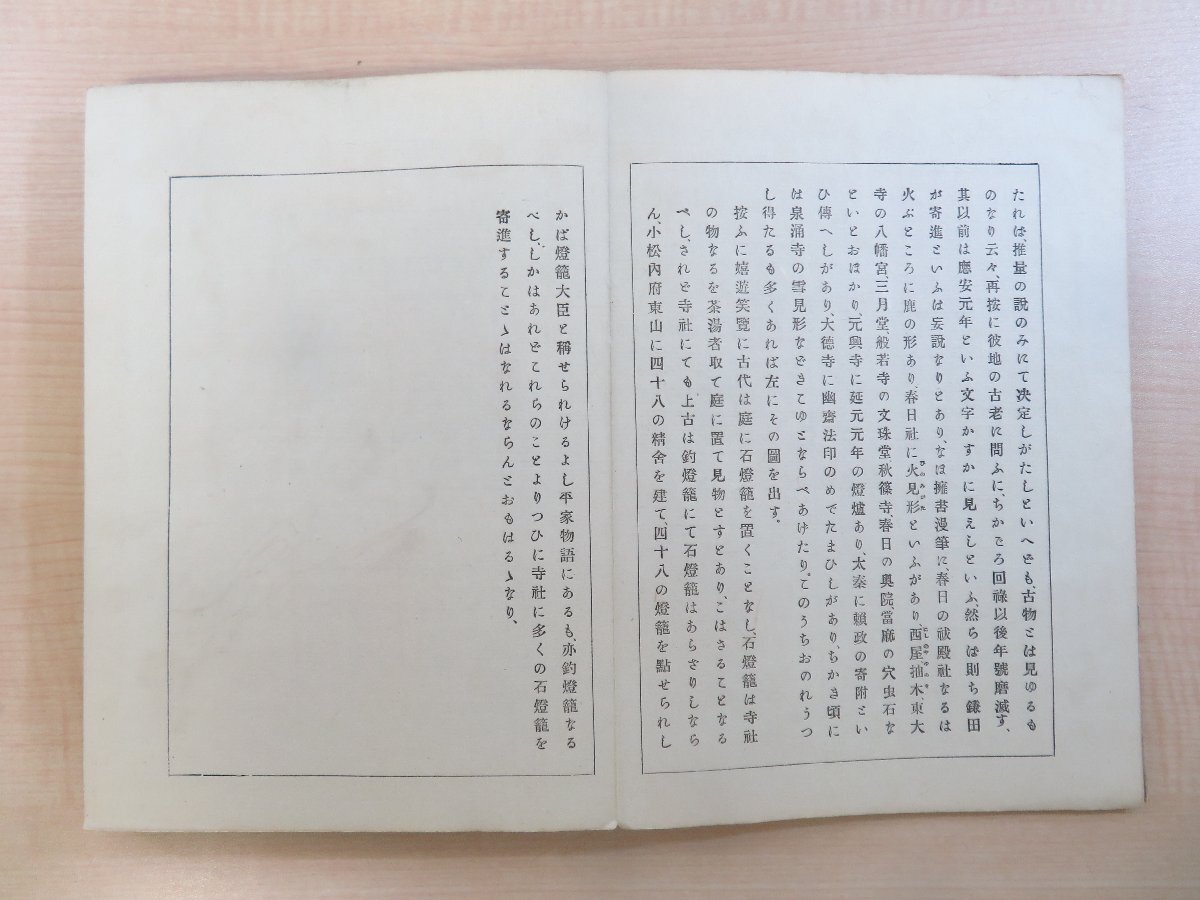 たれば、推量の説のみにて決定しがたしといへども、古物とは見ゆるも
のなり云々、再按に彼地の古老に問ふに、ちかごろ回祿以後年號磨滅す、
其以前は應安元年といふ文字かすかに見えしといふ、然らば則ち鎌田
が寄進といふは妄説なりとあり、なほ擁書漫筆に、春日の祓殿社なるは
火ぶところに鹿の形あり、春日社に火見形といふがあり、西屋抽木東大
寺の八幡宮、三月堂、般若寺の文珠堂秋篠寺、春日の奥院、當麻の穴虫石な
といとおほかり、元興寺に延元元年の燈爐あり、太秦に頼政の寄附とい
ひ傳へしがあり、大德寺に幽齋法印のめでたまひしがあり、ちかき頃に
は泉涌寺の雪見形などきこゆとならべあけたり。このうちおのれうつ
し得たるも多くあれば左にその圖を出す。
按ふに嬉遊笑覽に古代は庭に石燈籠を置くことなし、石燈籠は寺社
の物なるを茶湯者取て庭に置て見物とすとあり、こはさることなる
べし、されど寺社にても上古は釣燈籠にて石燈籠はあらざりしなら
ん、小松內府東山に四十八の精舍を建て、四十八の燈籠を點せられし
かば燈籠大臣と稱せられけるよし平家物語にあるも、亦釣燈籠なる
べし、しかはあれどこれらのことよりつひに寺社に多くの石燈籠を
寄進することゝはなれるならんとおもはるゝなり、